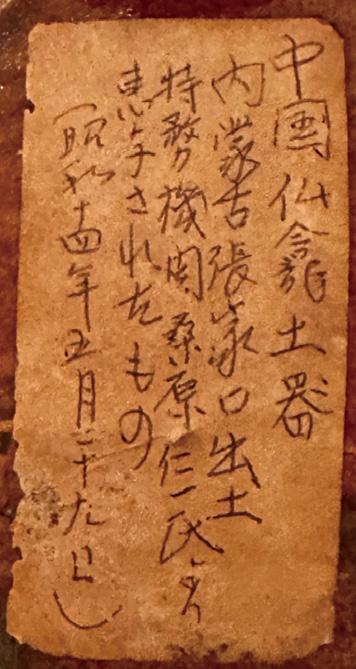 中国仏龕土器
内蒙古張家口出土
特務機関桑原仁一氏より
恵与されたもの
(昭和十四年五月二十九日)